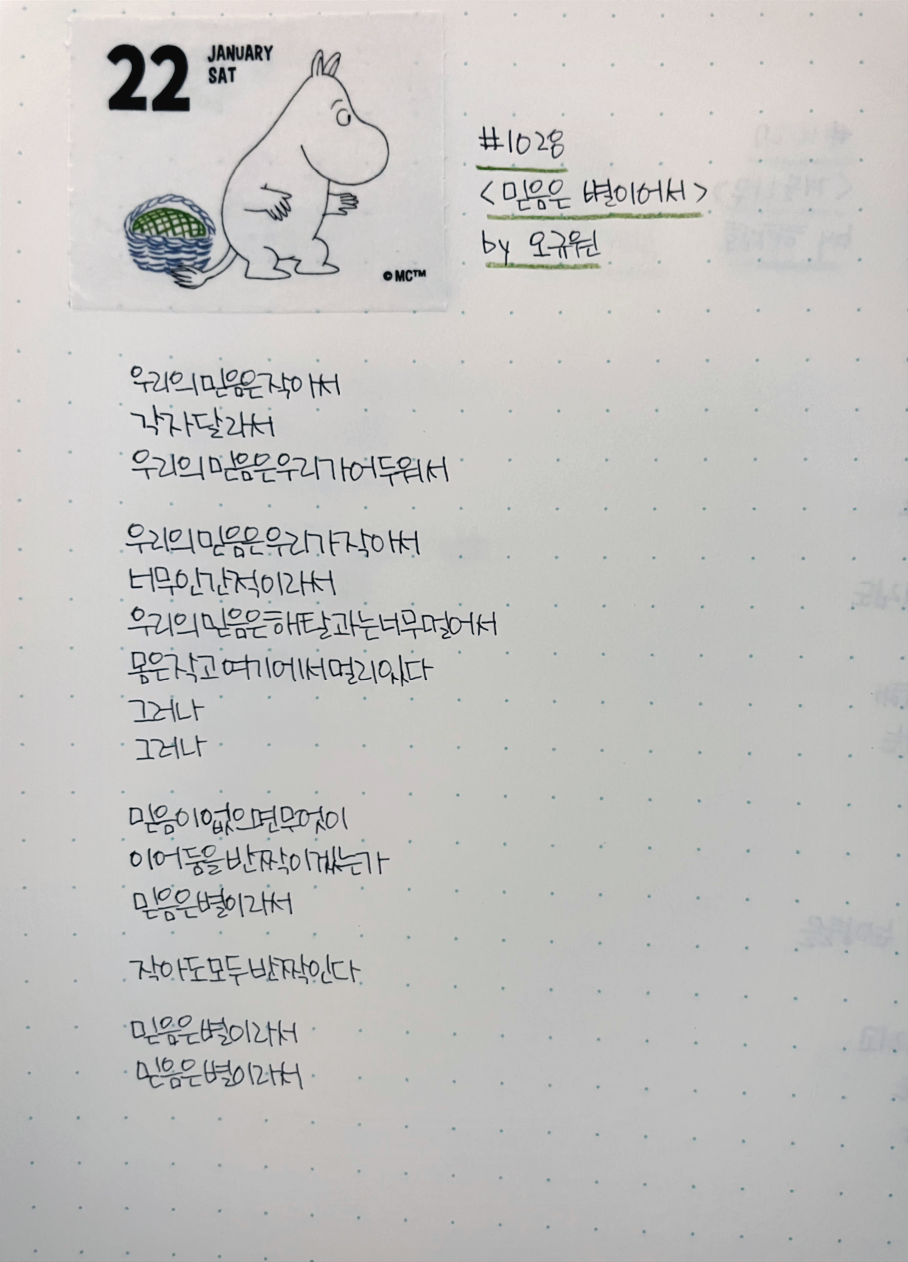 22
JANUARY
SAT
©MC™
#1028
<믿음은 별이어서>
by 오규원
우리의믿음은작아서
각자달라서
우리의믿음은우리가어두워서
우리의믿음은우리가작아서
너무인간적이라서
우리의믿음은해탈과는너무멀어서
몸은작고여기에서멀리있다
그러나
그러나
믿음이없으면무엇이
이어둠을반짝이겠는가
믿음은별이라서
작아도모두반짝인다
믿음은별이라서
믿음은별이라서